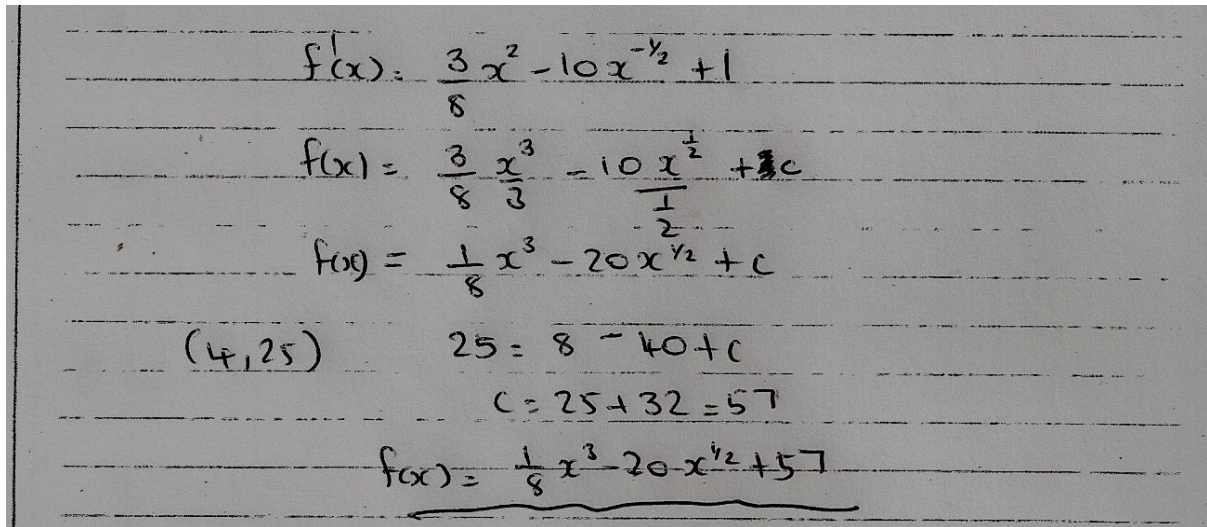 f'(x) = 3/8 x² - 10x^(-1/2) + 1
f(x) = 3/8 x³/3 - 10x^(1/2)/(1/2) + c
f(x) = 1/8 x³ - 20x^(1/2) + c
(4,25) 25 = 8 - 40 + c
c = 25 + 32 = 57
f(x) = 1/8 x³ - 20x^(1/2) + 57